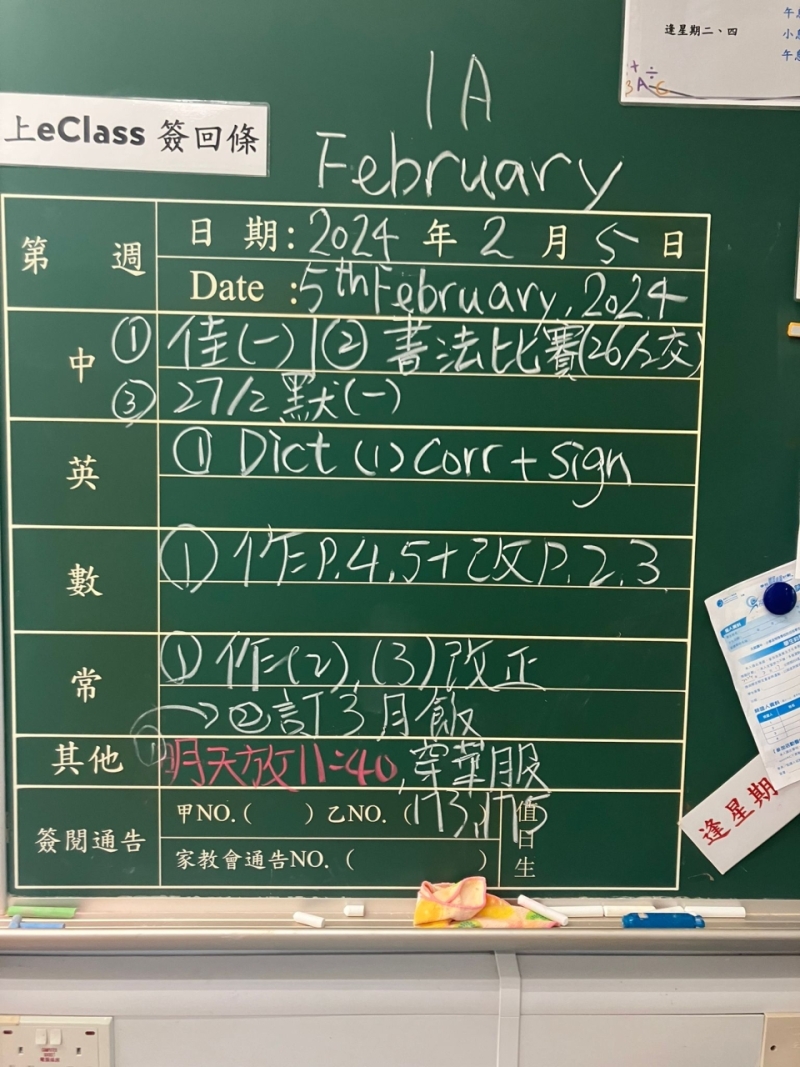 逢星期二、四
午息
小息
午息
上eClass 簽回條
1A
February
第 週
日 期: 2024 年 2 月 5 日
Date : 5th February, 2024
中 ① 佳(一) ② 書法比賽(26/2交)
③ 27/2 默(一)
英 ① Dict (1) Corr + sign
數 ① 作P.4,5+改P.2,3
常 ① 作(2),(3)改正
→②訂3月飯
其他 ① 明天放11:40,穿華服
簽閱通告 甲NO.( ) 乙NO.(173,175) 值日生
家教會通告NO.( )
逢星期